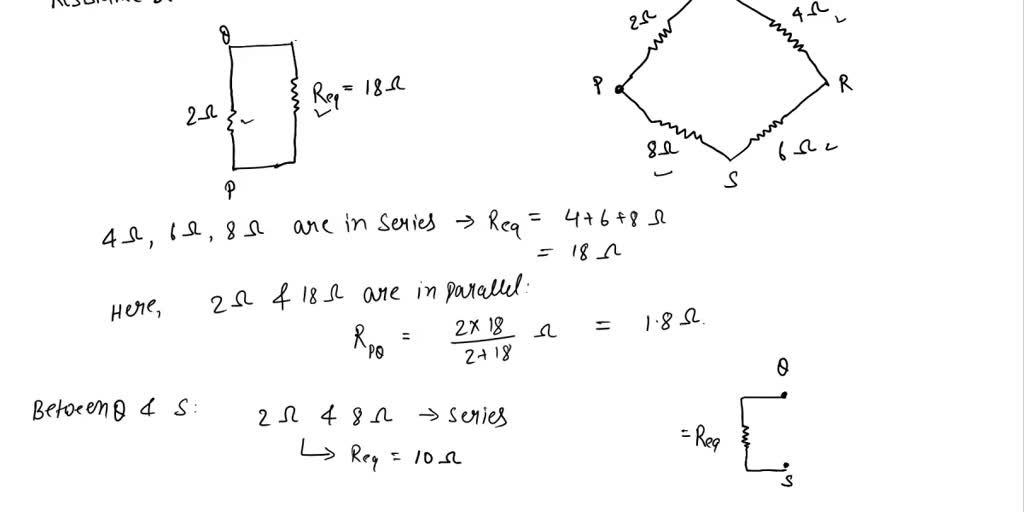 Q
2Ω
Req = 18Ω
P
2Ω
4Ω
P
R
8Ω
6Ω
S
4Ω, 6Ω, 8Ω are in series → Req = 4+6+8 Ω
= 18 Ω
Here, 2Ω & 18Ω are in parallel:
RPQ = 2×18/2+18 Ω = 1.8Ω.
Between Q & S: 2Ω & 8Ω → series
↳ Req = 10Ω
Q
= Req
S